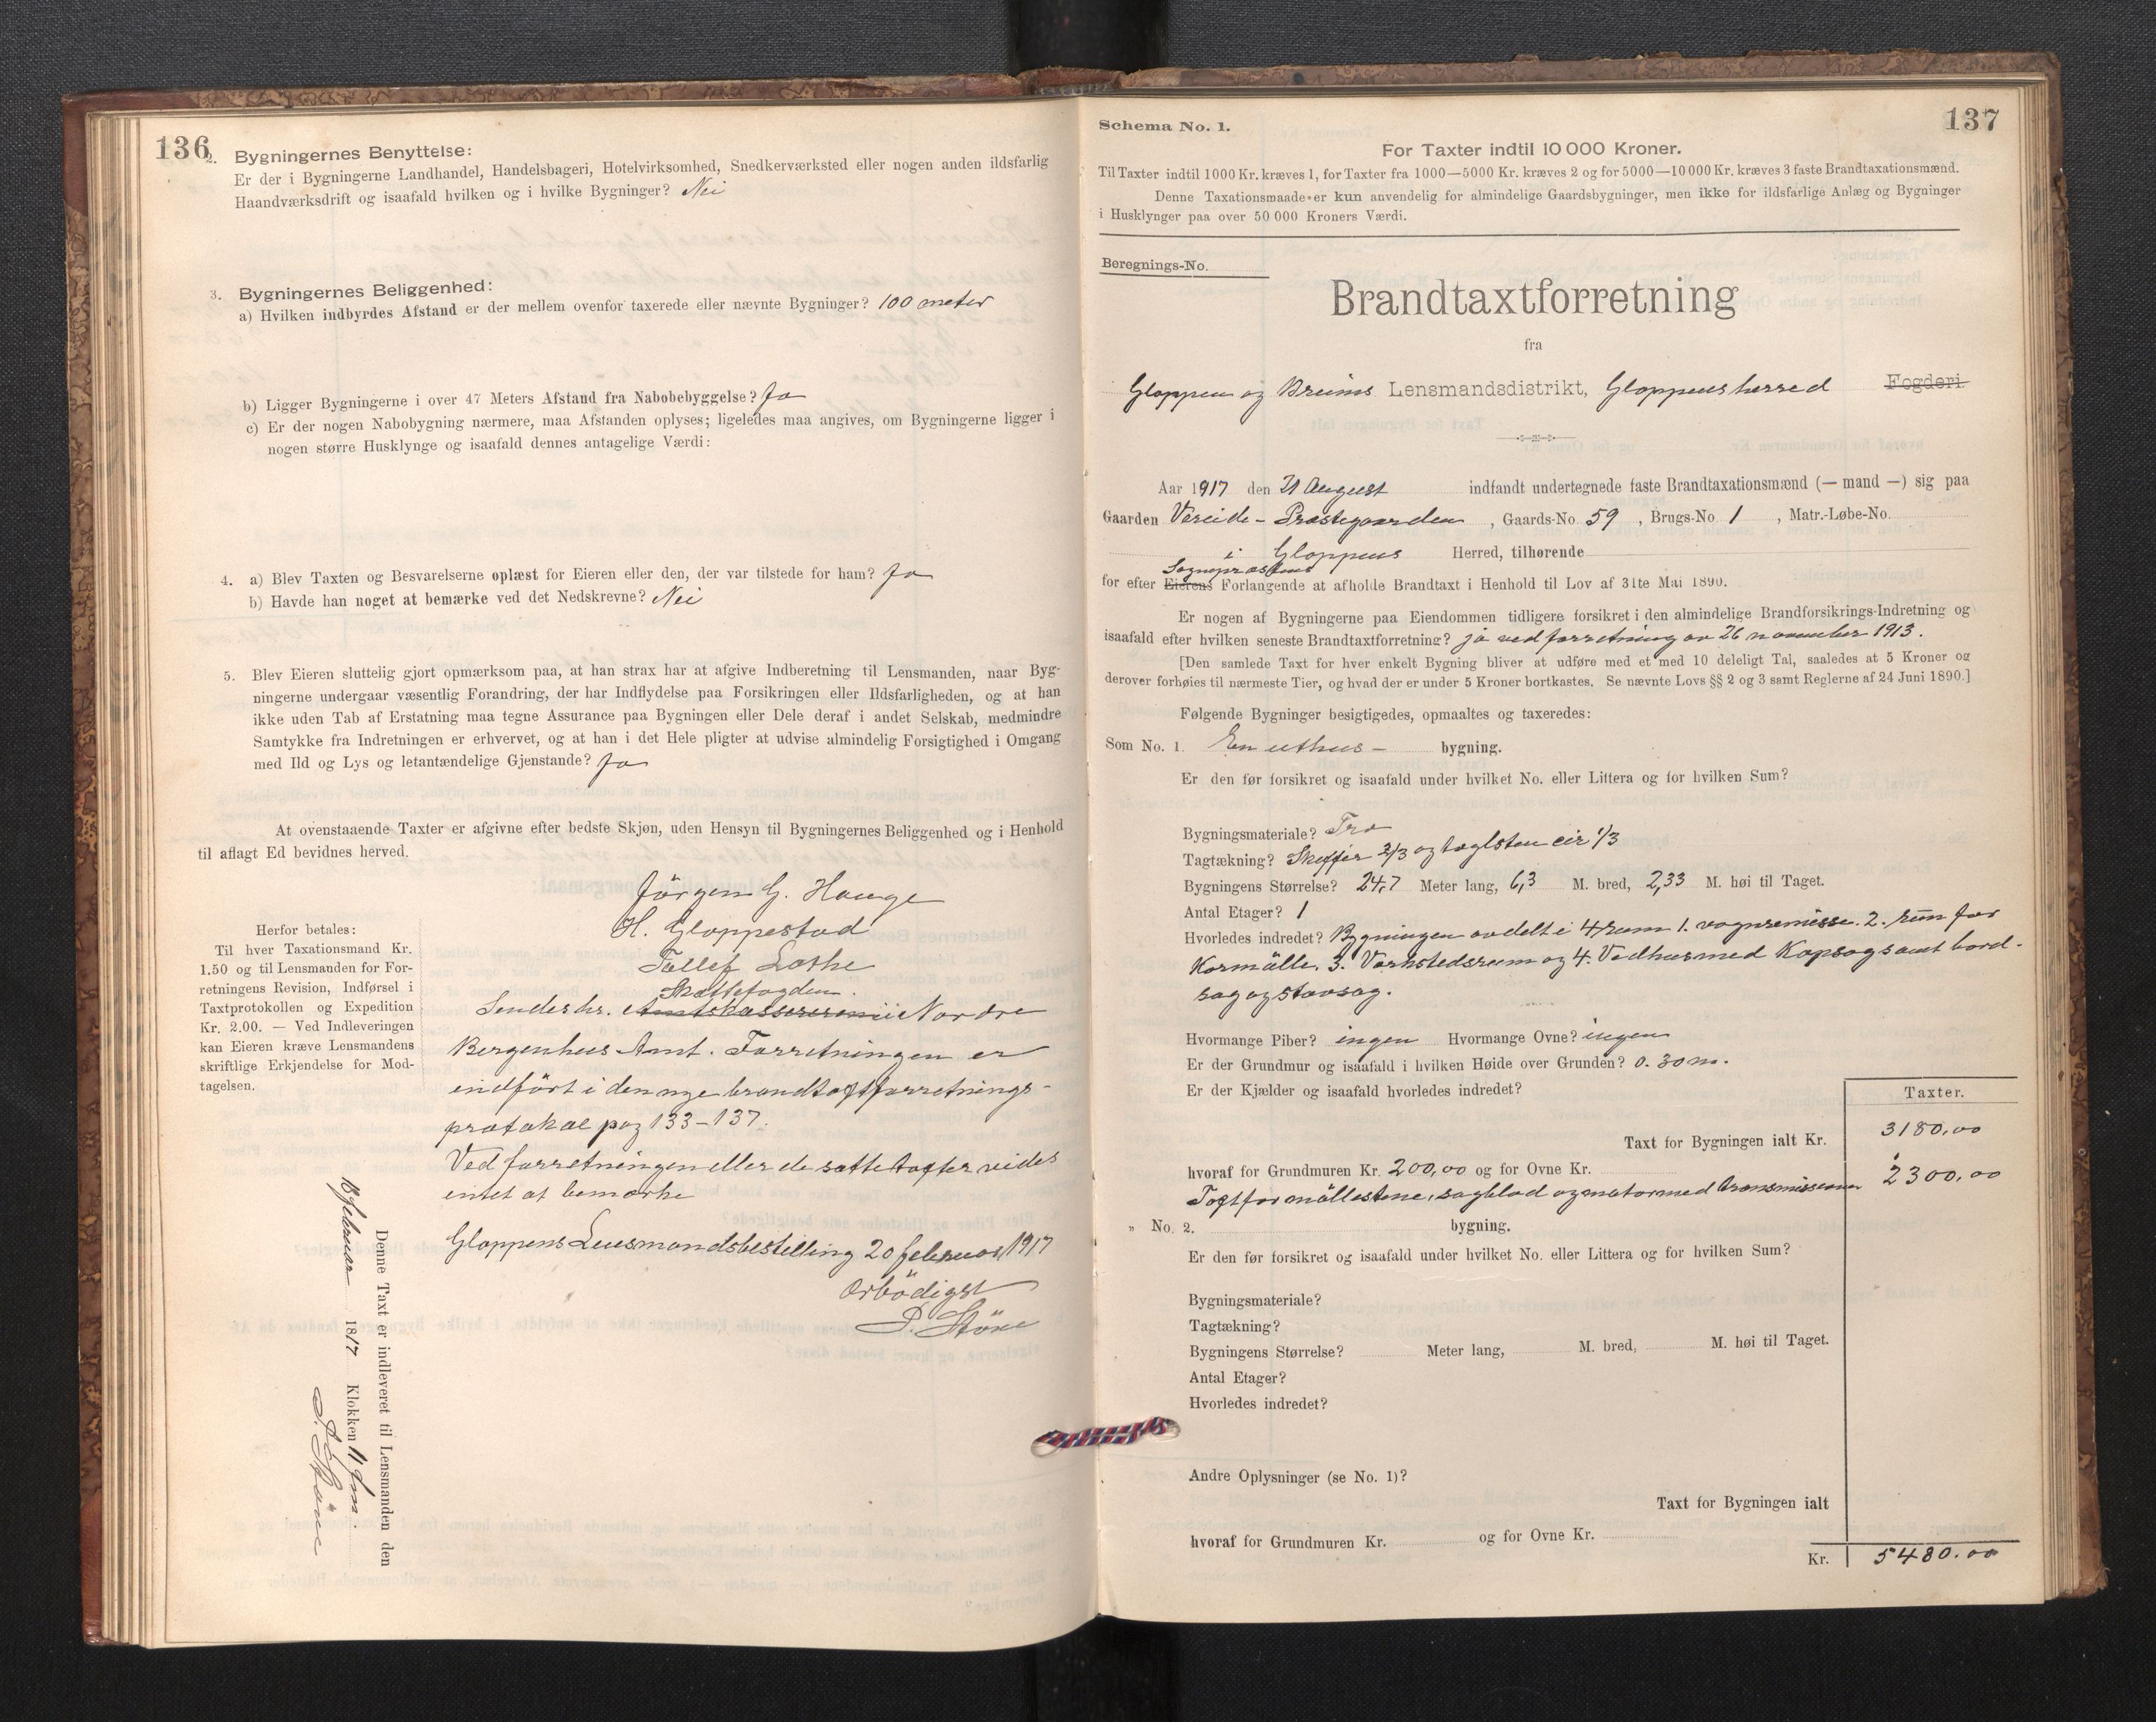 136
2. Bygningernes Benyttelse:
Er der i Bygningerne Landhandel, Handelsbageri, Hotelvirksomhed, Snedkerværksted eller nogen anden ildsfarlig
Haandværksdrift og isaafald hvilken og i hvilke Bygninger? Nei
3. Bygningernes Beliggenhed:
a) Hvilken indbyrdes Afstand er der mellem ovenfor taxerede eller nævnte Bygninger? 100 meter
b) Ligger Bygningerne i over 47 Meters Afstand fra Nabobebyggelse? Ja
c) Er der nogen Nabobygning nærmere, maa Afstanden oplyses; ligeledes maa angives, om Bygningerne ligger i
nogen større Husklynge og isaafald dennes antagelige Værdi:
4. a) Blev Taxten og Besvarelserne oplæst for Eieren eller den, der var tilstede for ham? Ja
b) Havde han noget at bemærke ved det Nedskrevne? Nei
5. Blev Eieren sluttelig gjort opmærksom paa, at han strax har at afgive Indberetning til Lensmanden, naar Byg-
ningerne undergaar væsentlig Forandring, der har Indflydelse paa Forsikringen eller Ildsfarligheden, og at han
ikke uden Tab af Erstatning maa tegne Assurance paa Bygningen eller Dele deraf i andet Selskab, medmindre
Samtykke fra Indretningen er erhvervet, og at han i det Hele pligter at udvise almindelig Forsigtighed i Omgang
med Ild og Lys og letantændelige Gjenstande? Ja
At ovenstaaende Taxter er afgivne efter bedste Skjøn, uden Hensyn til Bygningernes Beliggenhed og i Henhold
til aflagt Ed bevidnes herved.
Jörgen G. Hauge
H. Gloppestad
Tollef Lothe
Herfor betales:
Til hver Taxationsmand Kr.
1.50 og til Lensmanden for For-
retningens Revision, Indførsel i
Taxtprotokollen og Expedition
Kr. 2.00. — Ved Indleveringen
kan Eieren kræve Lensmandens
skriftlige Erkjendelse for Mod-
tagelsen.
Skattefogden
Sendes hr. Amtskassereren i Nordre
Bergenhus Amt. Forretningen er
indfört i den nye brandtaxtforretnings-
protokol pag 133-137.
Ved forretningen eller de satte taxter vides
intet at bemærke
Gloppens Lensmandsbestilling 20 februar 1917
Ærbödigst
P. Støne
Denne Taxt er indleveret til Lensmanden den
18 februar 1817 Klokken 11 fm.
137
Schema No. 1.
For Taxter indtil 10 000 Kroner.
Til Taxter indtil 1000 Kr. kræves 1, for Taxter fra 1000—5000 Kr. kræves 2 og for 5000—10 000 Kr. kræves 3 faste Brandtaxationsmænd.
Denne Taxationsmaade er kun anvendelig for almindelige Gaardsbygninger, men ikke for ildsfarlige Anlæg og Bygninger
i Husklynger paa over 50 000 Kroners Værdi.
Beregnings-No.
Brandtaxtforretning
fra
Gloppen og Breims Lensmandsdistrikt, Gloppens herred Fogderi
Aar 1917 den 21 August indfandt undertegnede faste Brandtaxationsmænd (— mand —) sig paa
Gaarden Vereide - Præstegaarden, Gaards-No. 59, Brugs-No 1, Matr.-Løbe-No.
i Gloppens Herred, tilhørende
Sognepræstens
for efter Eierens Forlangende at afholde Brandtaxt i Henhold til Lov af 31te Mai 1890.
Er nogen af Bygningerne paa Eiendommen tidligere forsikret i den almindelige Brandforsikrings-Indretning og
isaafald efter hvilken seneste Brandtaxtforretning? ja ved forretning av 26 november 1913.
[Den samlede Taxt for hver enkelt Bygning bliver at udføre med et med 10 deleligt Tal, saaledes at 5 Kroner og
derover forhøies til nærmeste Tier, og hvad der er under 5 Kroner bortkastes. Se nævnte Lovs §§ 2 og 3 samt Reglerne af 24 Juni 1890.]
Følgende Bygninger besigtigedes, opmaaltes og taxeredes:
Som No. 1. En uthus - bygning.
Er den før forsikret og isaafald under hvilket No. eller Littera og for hvilken Sum?
Bygningsmateriale? Træ
Tagtækning? Skiffer 2/3 og taglsten cir 1/3
Bygningens Størrelse? 24,7 Meter lang, 6,3 M. bred, 2,33 M. høi til Taget.
Antal Etager? 1
Hvorledes indredet? Bygningen avdelt i 4 rum 1. vognremisse. 2. rum for
Kornmölle. 3. Værkstedsrum og 4. Vedhus med Kapsag samt bord-
sag og stavsag.
Hvormange Piber? ingen Hvormange Ovne? ingen
Er der Grundmur og isaafald i hvilken Høide over Grunden? 0.30 m.
Er der Kjælder og isaafald hvorledes indredet?
Taxter.
Taxt for Bygningen ialt Kr. 3180,00
hvoraf for Grundmuren Kr. 200,00 og for Ovne Kr.
Taxt for möllestene, sagblad og motor med transmissioner 2300,00
" No. 2. bygning.
Er den før forsikret og isaafald under hvilket No. eller Littera og for hvilken Sum?
Bygningsmateriale?
Tagtækning?
Bygningens Størrelse? Meter lang, M. bred, M. høi til Taget.
Antal Etager?
Hvorledes indredet?
Andre Oplysninger (se No. 1)?
Taxt for Bygningen ialt
hvoraf for Grundmuren Kr. og for Ovne Kr.
Kr. 5480.00